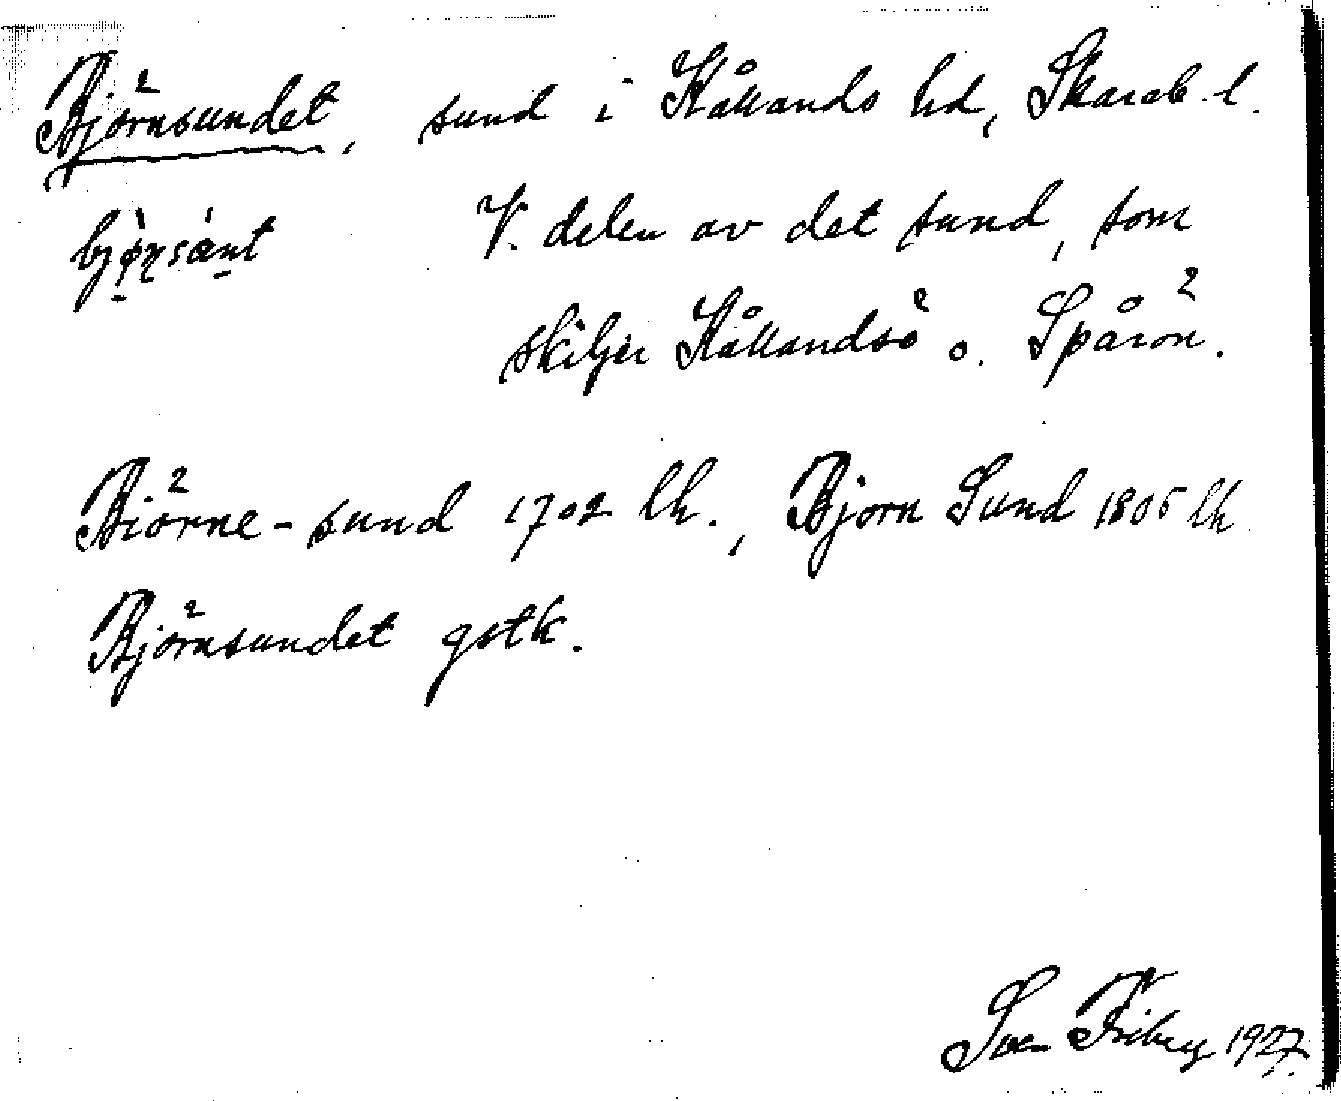 Björnsundet, sund i Kållands hd, Skarab. l.
V. delen av det sund, som
skiljer Kållandsö o. Spårön.
Biörne-sund 1702 lh., Björn Sund 1805 lh
Björnsundet gstk.
Sven Friberg 1927.